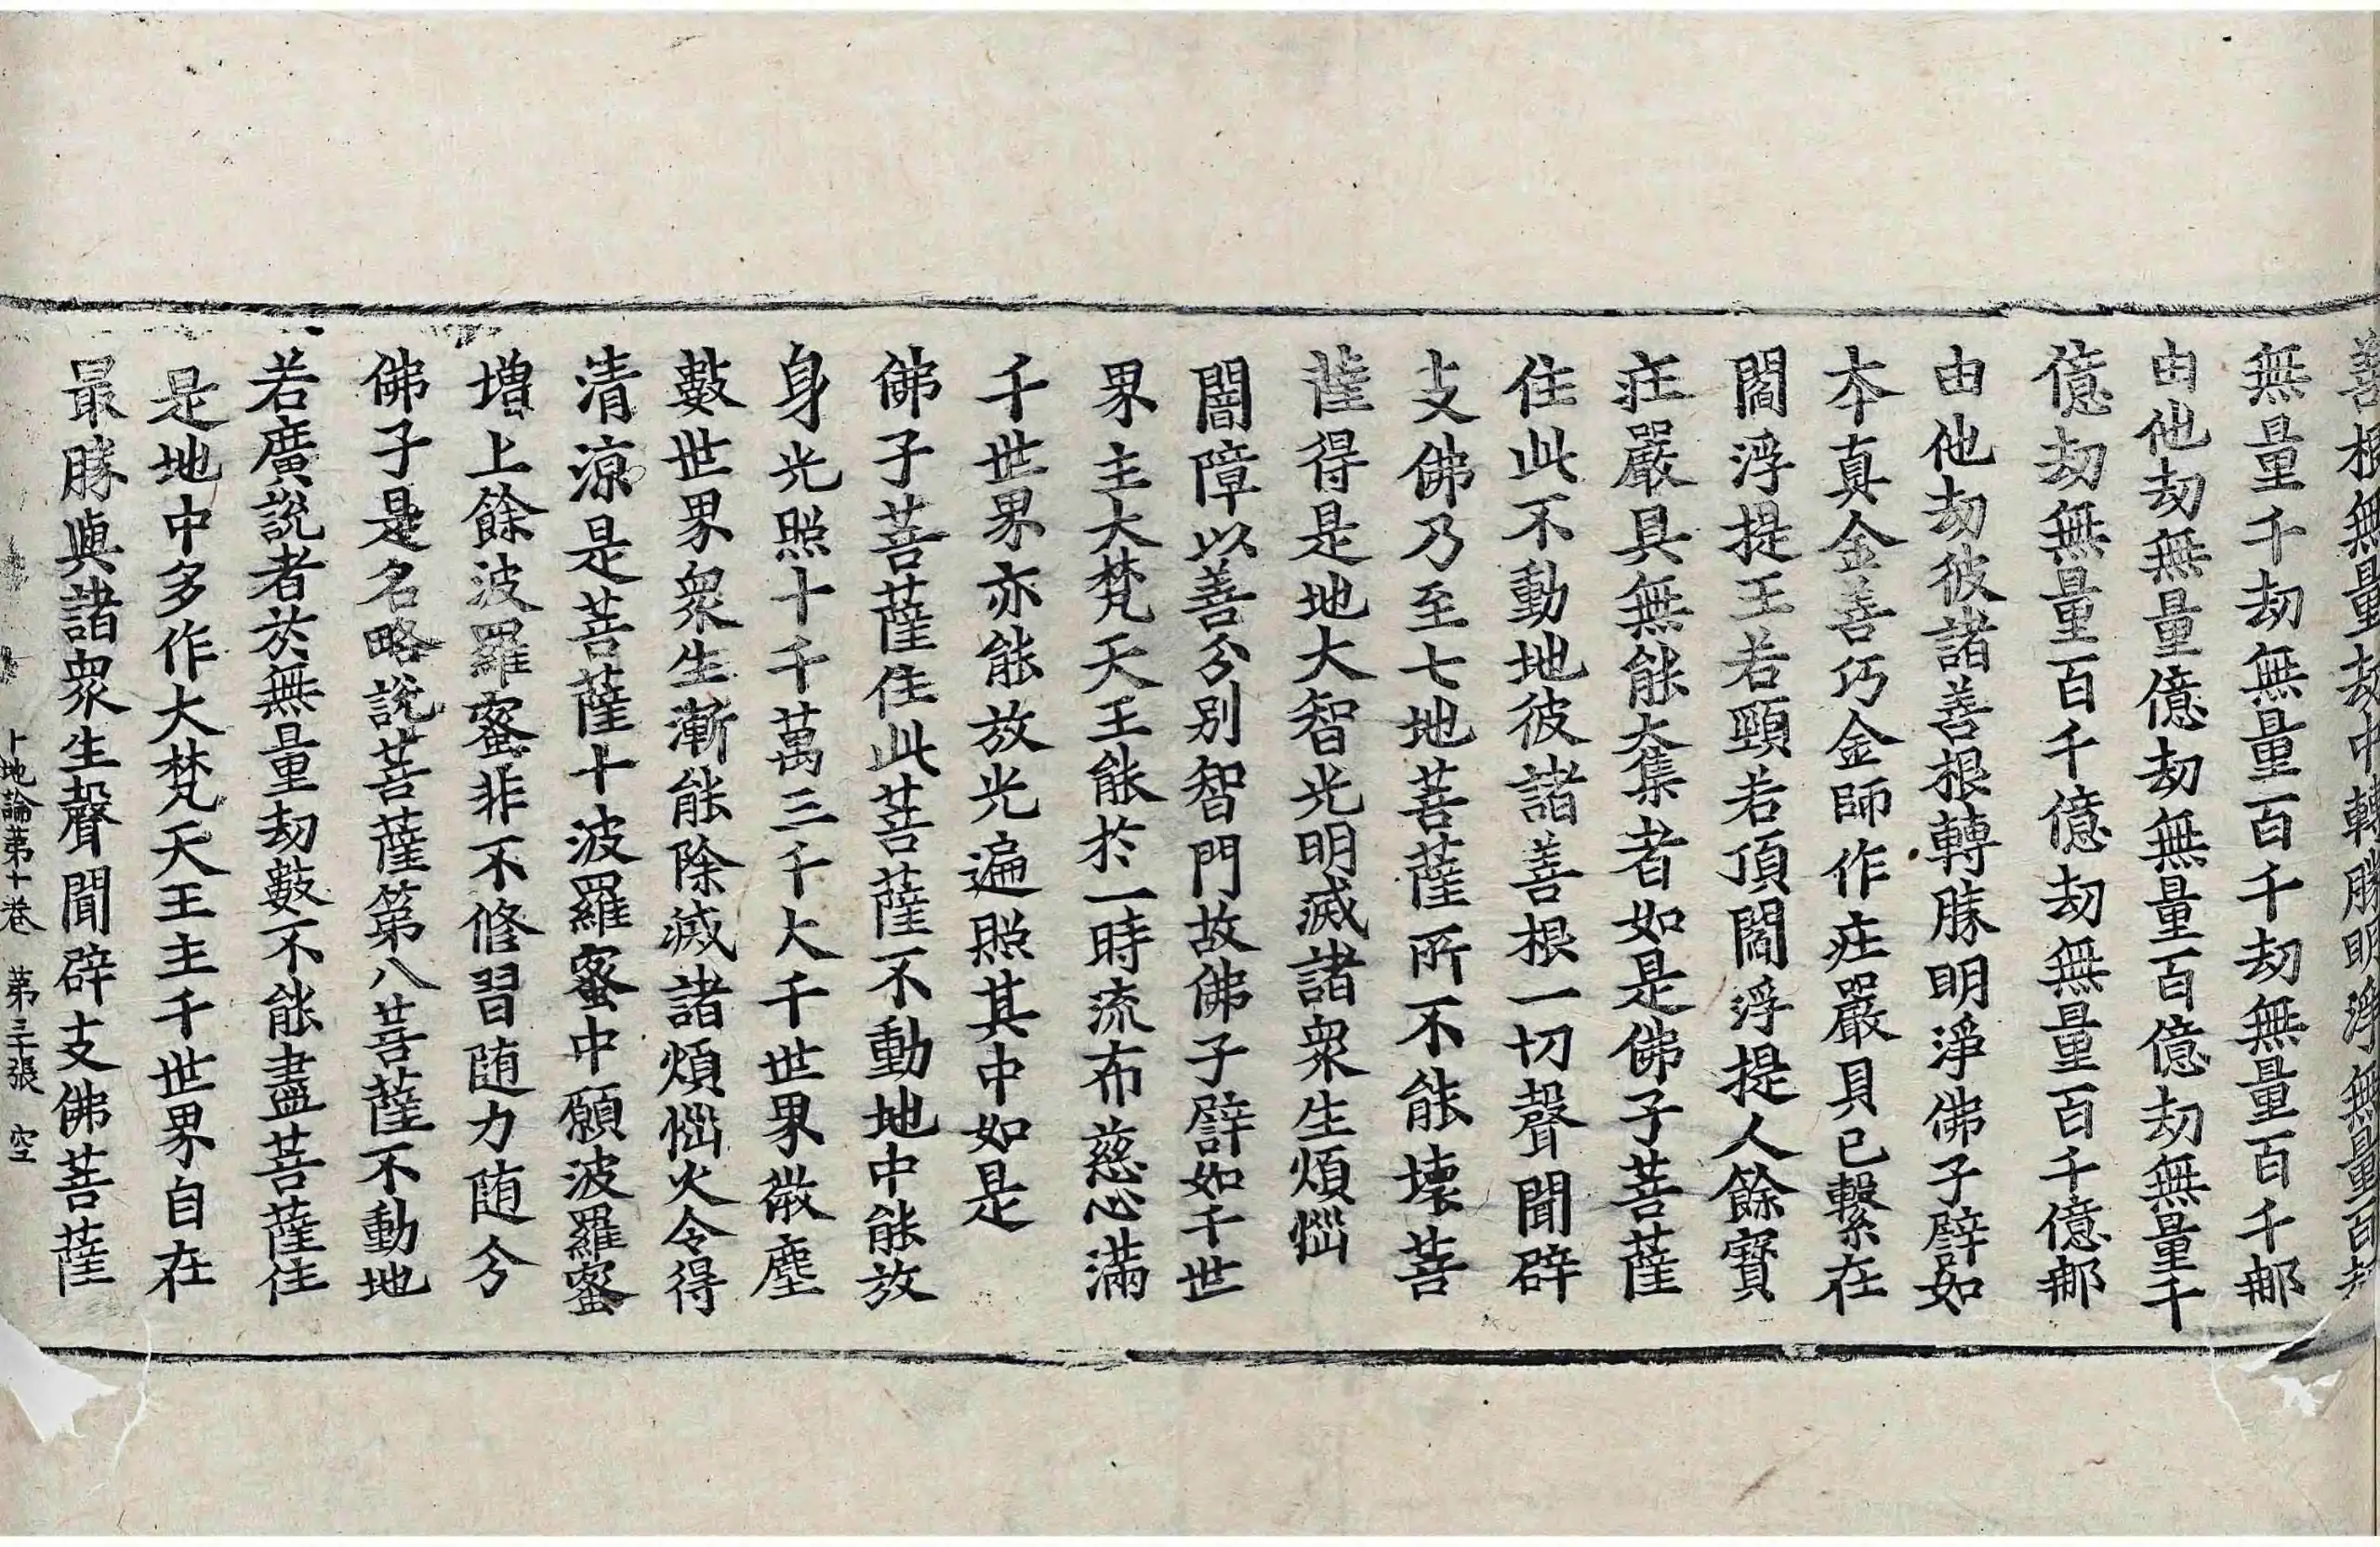 善根無量劫中轉勝明淨無量百劫
無量千劫無量百千劫無量百千那
由他劫無量億劫無量百億劫無量千
億劫無量百千億劫無量百千億那
由他劫彼諸善根轉勝明淨佛子譬如
本真金善巧金師作庄嚴具已繫在
閻浮提王若頸若頂閻浮提人餘寶
庄嚴具無能大集者如是佛子菩薩
住此不動地彼諸善根一切聲聞辟
支佛乃至七地菩薩所不能壞菩
薩得是地大智光明滅諸衆生煩惱
闇障以善分別智門故佛子譬如千世
界主大梵天王能於一時流布慈心滿
千世界亦能放光遍照其中如是
佛子菩薩住此菩薩不動地中能放
身光照十千萬三千大千世界微塵
數世界衆生漸能除滅諸煩惱火令得
清涼是菩薩十波羅蜜中願波羅蜜
增上餘波羅蜜非不修習随力随分
佛子是名略說菩薩第八菩薩不動地
若廣說者於無量劫數不能盡菩薩住
是地中多作大梵天王主千世界自在
最勝與諸衆生聲聞辟支佛菩薩
十地論第十卷 第三張 空